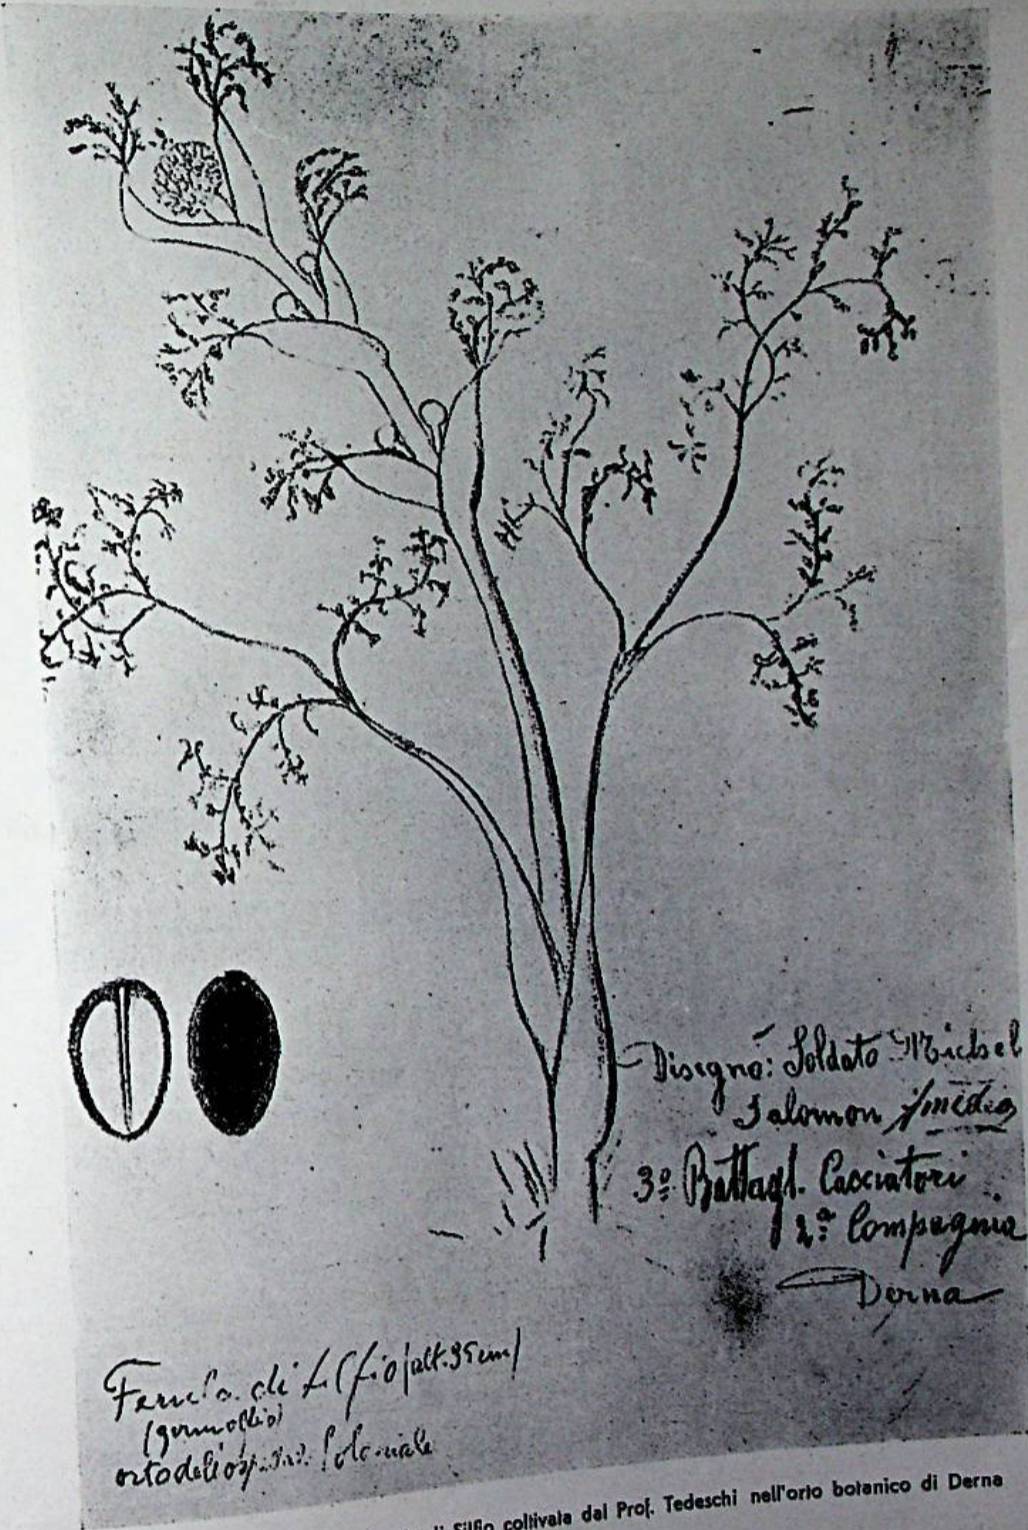 Disegnò: Soldato Michel
Salomon
3º Battagl. Cacciatori
2ª Compagnia
Derna
Ferula di Silfio (alt. 35 cm)
(germoglio)
orto dell'osp. Coloniale
di Silfio coltivata dal Prof. Tedeschi nell'orto botanico di Derna